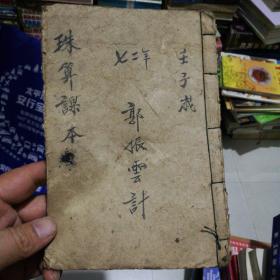 壬子歲
七二年
郭振雲計
珠算課本